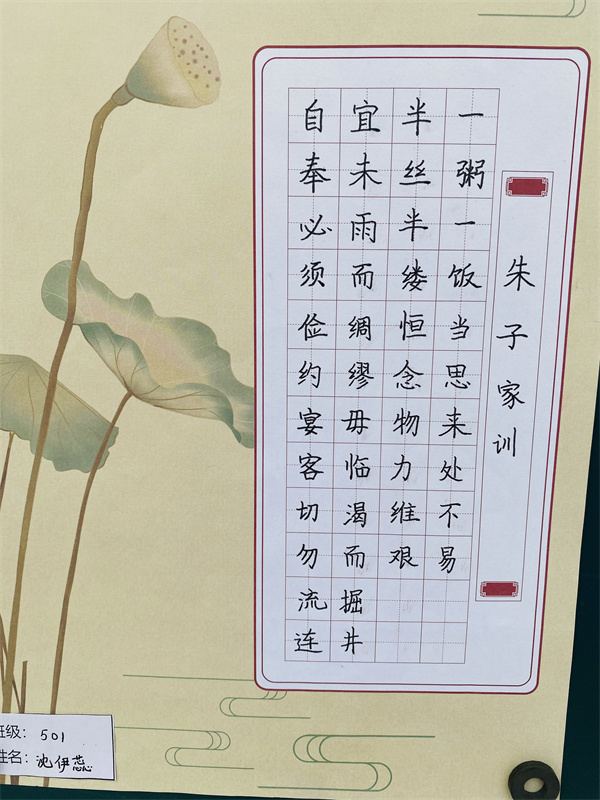 朱子家训
一粥一饭当思来处不易
半丝半缕恒念物力维艰
宜未雨而绸缪毋临渴而掘井
自奉必须俭约宴客切勿流连
班级：501
姓名：沈伊蕊